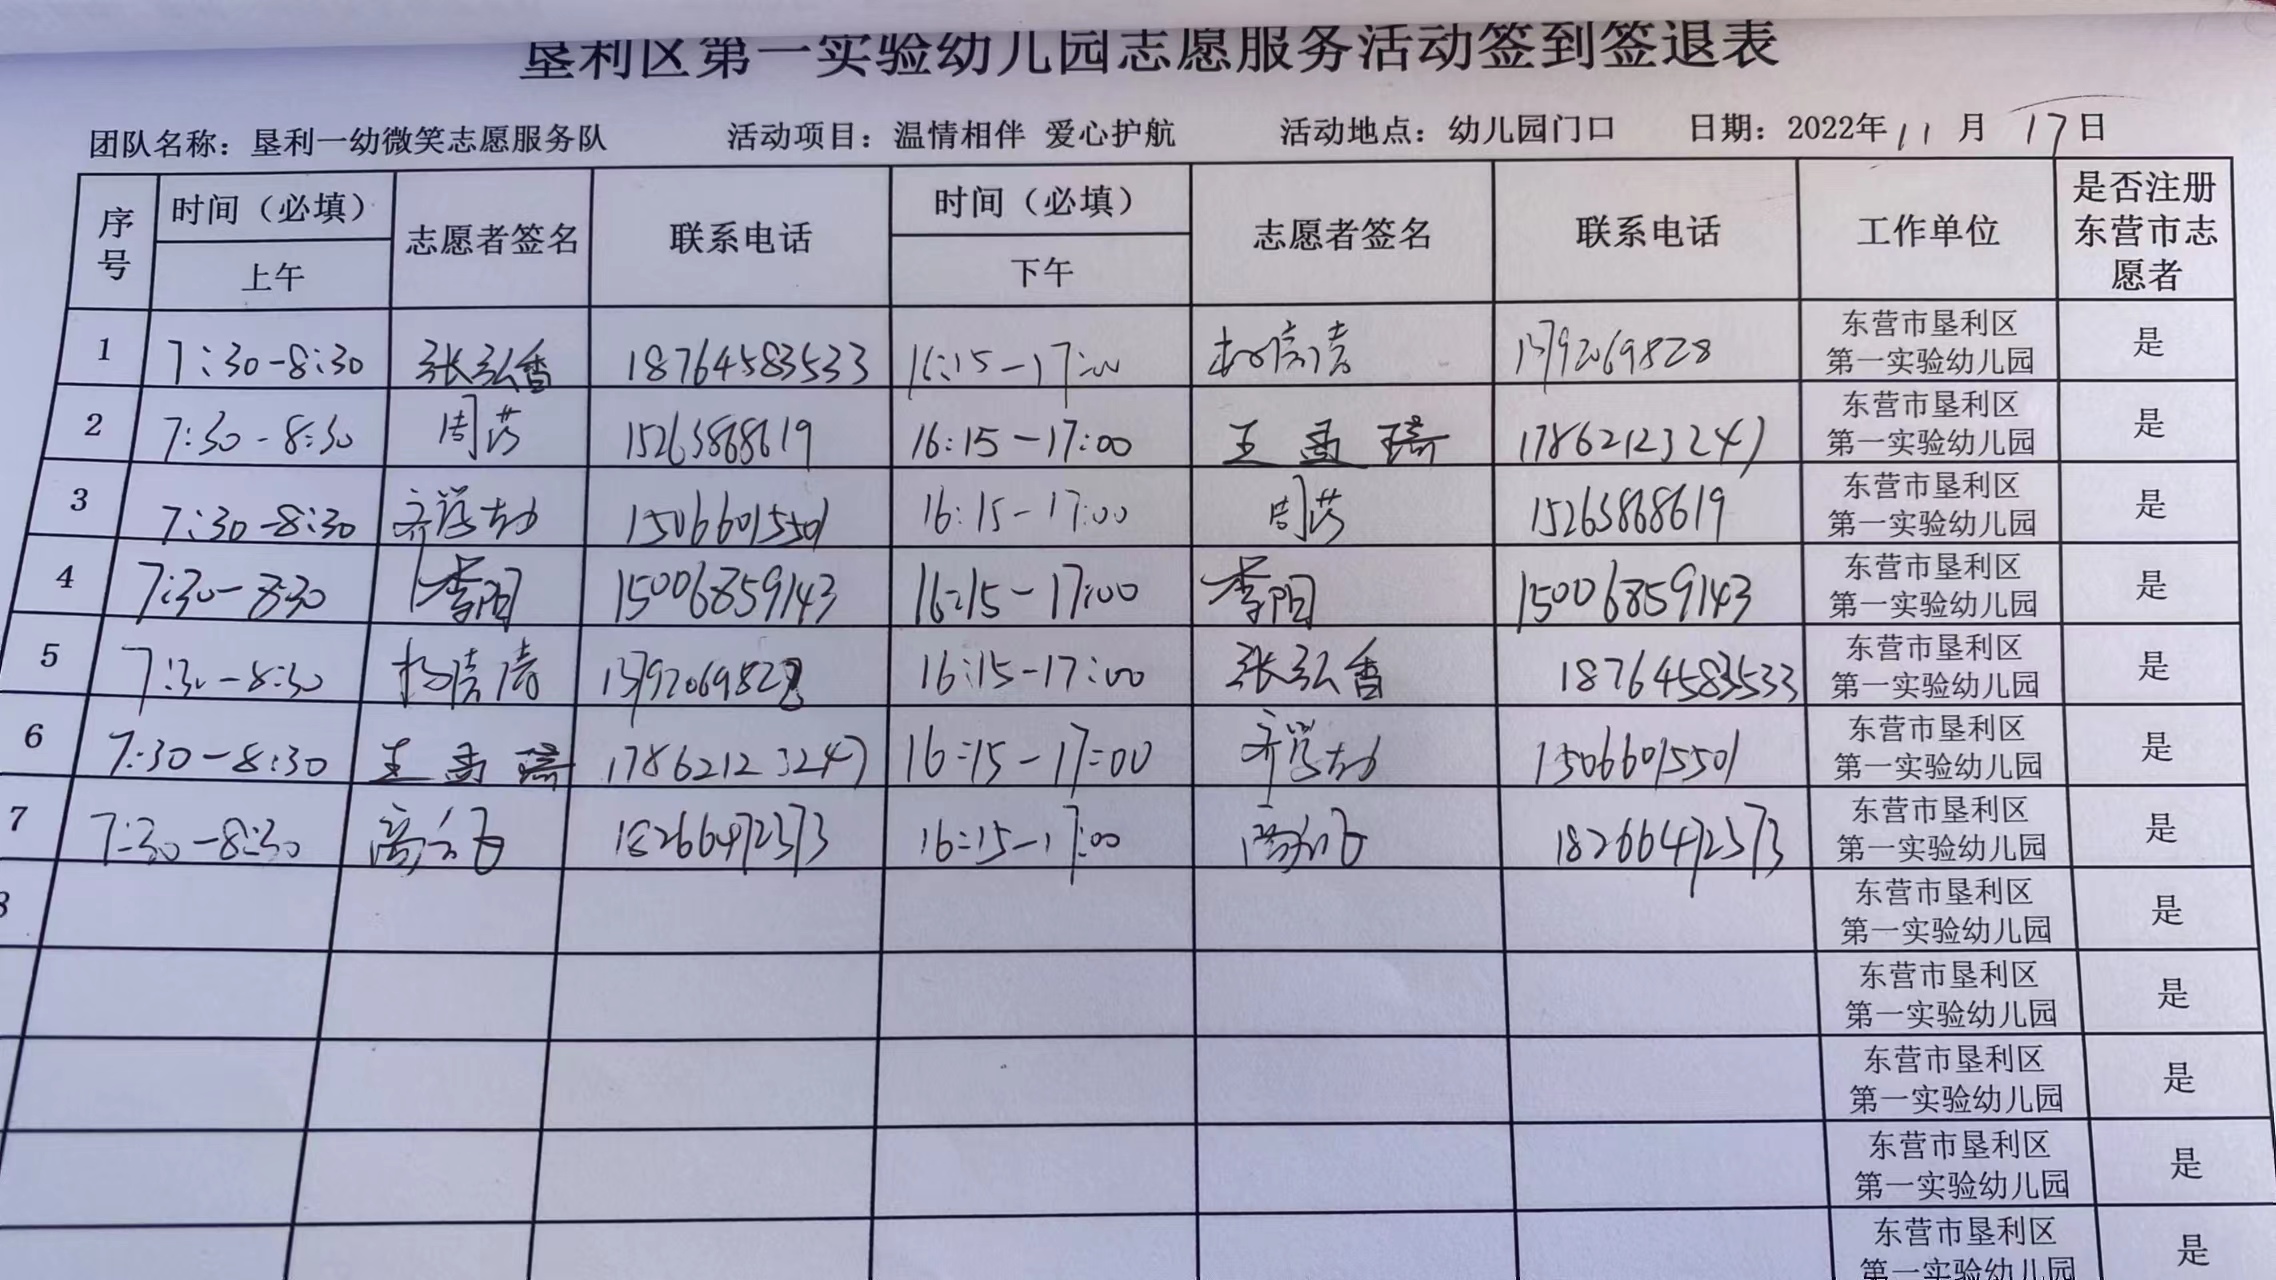 垦利区第一实验幼儿园志愿服务活动签到签退表
团队名称：垦利一幼微笑志愿服务队 活动项目：温情相伴 爱心护航 活动地点：幼儿园门口 日期：2022年 11 月 17 日
序号 时间（必填） 上午 志愿者签名 联系电话 时间（必填） 下午 志愿者签名 联系电话 工作单位 是否注册东营市志愿者
1 7:30-8:30 张弘香 18764583533 16:15-17:00 13792069828 东营市垦利区第一实验幼儿园 是
2 7:30-8:30 周芳 15263868619 16:15-17:00 王孟琦 17862123247 东营市垦利区第一实验幼儿园 是
3 7:30-8:30 15066015501 16:15-17:00 周芳 15263868619 东营市垦利区第一实验幼儿园 是
4 7:30-8:30 李阳 15006859143 16:15-17:00 李阳 15006859143 东营市垦利区第一实验幼儿园 是
5 7:30-8:30 13792069828 16:15-17:00 张弘香 18764583533 东营市垦利区第一实验幼儿园 是
6 7:30-8:30 王孟琦 17862123247 16:15-17:00 15066015501 东营市垦利区第一实验幼儿园 是
7 7:30-8:30 18266472373 16:15-17:00 18266472373 东营市垦利区第一实验幼儿园 是
8 东营市垦利区第一实验幼儿园 是
东营市垦利区第一实验幼儿园 是
东营市垦利区第一实验幼儿园 是
东营市垦利区第一实验幼儿园 是
东营市垦利区第一实验幼儿园 是